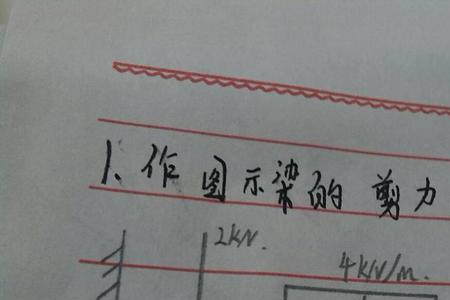 1、作图示梁的剪力
2KN.
4KN/m.